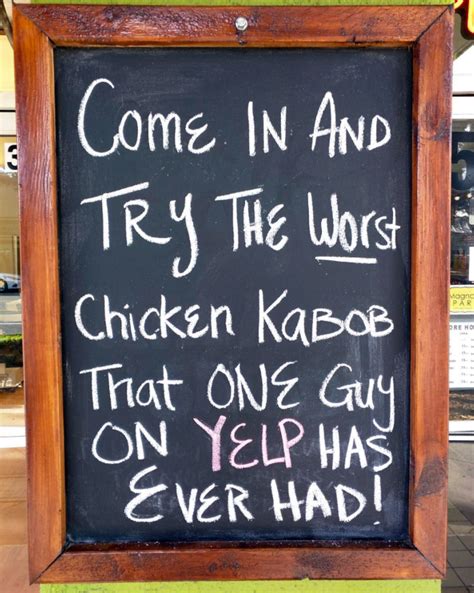 Come In And
Try The Worst
Chicken Kabob
That One Guy
On Yelp Has
Ever Had!
3
Magno
PAR
ORE HO